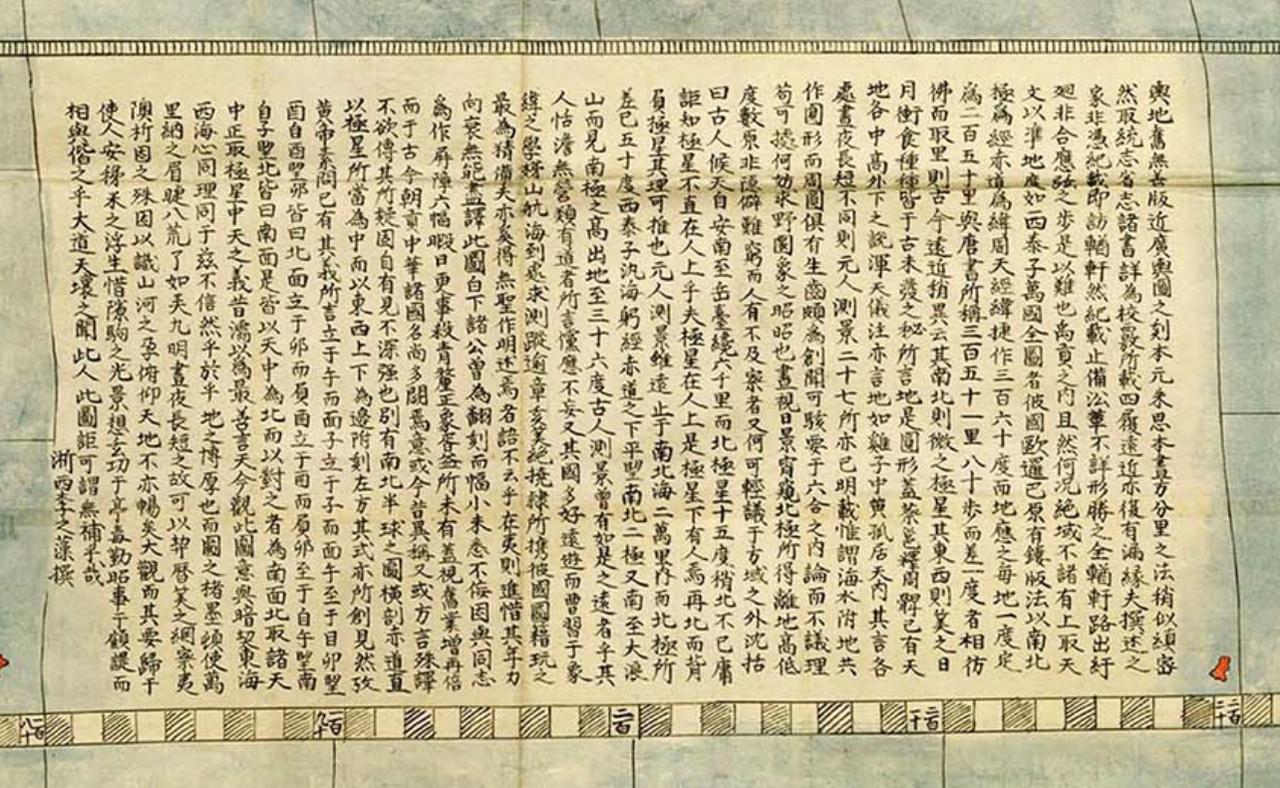 輿地舊無善版近廣輿圖之刻本元朱思本畫方分里之法稍似縝密
然取統志省志諸書詳為校覈所載四履遠近亦復有漏緣夫撰述之
家非憑紀載即訪輶軒然紀載止備沿革不詳形勝之全輶軒路出紆
廻非合應弦之步是以難也禹貢之内且然何况絶域不諳有上取天
文以準地度如西泰子萬國全圖者彼國歐邏巴原有鏤版法以南北
極爲經赤道爲緯周天經緯捷作三百六十度而地應之每地一度定
爲二百五十里與唐書所稱三百五十一里八十步而差一度者相彷
彿而取里則古今遠近稍異云其南北則徵之極星其東西則筭之日
月衝食種種皆千古未發之秘所言地是圓形蓋蔡邕釋周髀已有天
地各中高外下之說渾天儀注亦言地如雞子中黄孤居天内其言各
處晝夜長短不同則元人測景二十七所亦已明載惟謂海水附地共
作圓形而周圓俱有生齒頗為創聞可駭要于六合之内論而不議理
苟可據何妨求野圜象之昭昭也晝視日景宵窺北極所得離地高低
度數原非隱僻難窮而人有不及察者又何可輕議于方域之外沈括
曰古人候天自安南至岳臺纔六千里而北極星十五度稍北不已庸
詎知極星不直在人上乎夫極星在人上是極星下有人焉再北而背
負極星其理可推也元人測景雖遠止于南北海二萬里内而北極所
差已五十度西泰子汎海躬經赤道之下平望南北二極又南至大浪
山而見南極之高出地至三十六度古人測景曾有如是之遠者乎其
人恬澹無營類有道者所言儻應不妄又其國多好遠遊而曹習于象
緯之學梯山航海到處求測蹤逾章亥筭絶撓隸所攜彼國圖籍玩之
最為精備夫亦奚得無聖作明述焉者語不云乎在夷則進惜其年力
向衰無能盡譯此圖白下諸公曾為翻刻而幅小未悉不佞因與同志
為作屏障六幅暇日更事殺青釐正象胥益所未有蓋視舊業增再倍
而于古今朝貢中華諸國名尚多闕焉意或今昔異稱又或方言殊譯
不欲傳其所疑固自有見不深强也別有南北半球之圖橫剖赤道直
以極星所當為中而以東西上下為邊附刻左方其式亦所創見然攷
黃帝素問已有其義所言立于午而面子立于子而面午至于自卯望
酉自酉望卯皆曰北面立于卯而負酉立于酉而負卯至于自午望南
自子望北皆曰南面是皆以天中為北而以對之者為南面北取諸天
中正取極星中天之義昔濡以為最善言天今觀此圖意與暗契東海
西海心同理同于茲不信然乎於乎地之博厚也而圖之楮墨頓使萬
里納之眉睫八荒了如夫九明晝夜長短之故可以挈曆筭之綱察夷
隩析因之殊因以識山河之孕俯仰天地不亦暢矣大觀而其要歸于
使人安稊米之浮生惜隙駒之光景想玄功于亭毒勤昭事于顧諟而
相與偕之乎大道天壤之間此人此圖詎可謂無補乎哉
浙西李之藻撰
二百二十
二百一十
二百
一百九十
一百八十